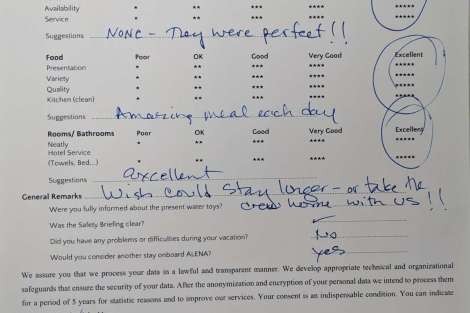 Availability * ** *** **** *****
Service * ** *** **** *****
Suggestions NONE - They were perfect!!
Food Poor OK Good Very Good Excellent
Presentation * ** *** **** *****
Variety * ** *** **** *****
Quality * ** *** **** *****
Kitchen (clean) * ** *** **** *****
Suggestions Amazing meal each day
Rooms/ Bathrooms Poor OK Good Very Good Excellent
Neatly * ** *** **** *****
Hotel Service
(Towels, Bed...) * ** *** **** *****
Suggestions axcellent
General Remarks Wish could stay longer - or take the
crew home with us!!
Were you fully informed about the present water toys?
Was the Safety Briefing clear?
Did you have any problems or difficulties during your vacation? No
Would you consider another stay onboard ALENA? yes
We assure you that we process your data in a lawful and transparent manner. We develop appropriate technical and organizational
safeguards that ensure the security of your data. After the anonymization and encryption of your personal data we intend to process them
for a period of 5 years for statistic reasons and to improve our services. Your consent is an indispensable condition. You can indicate